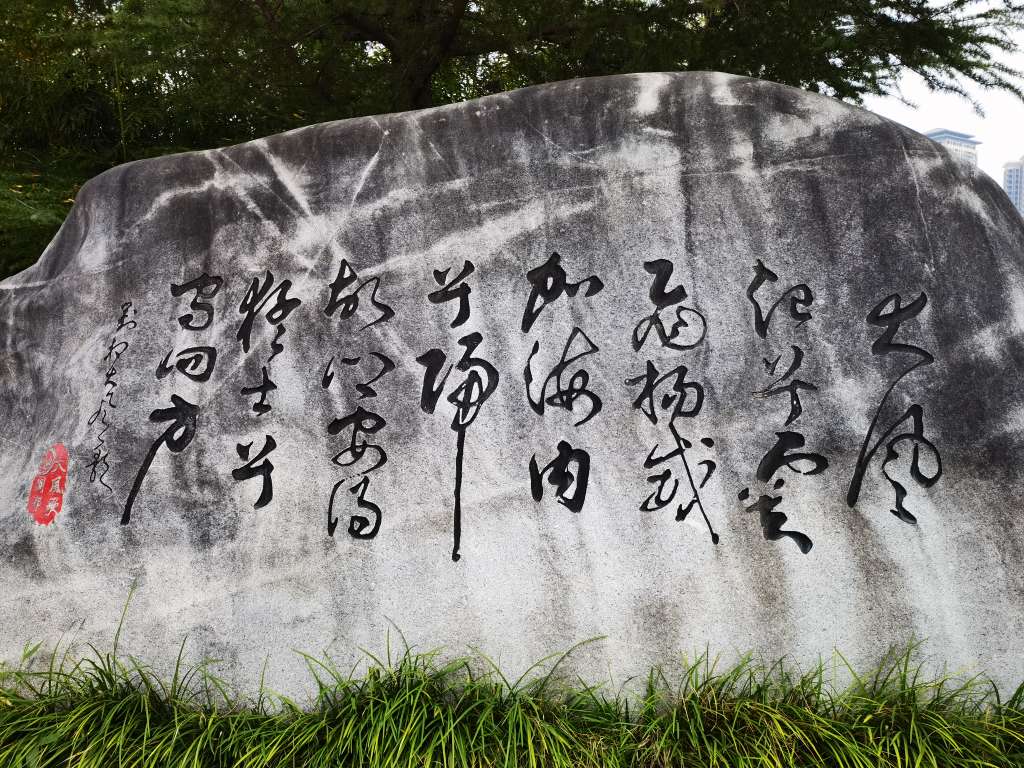 大風
起兮雲
飛揚威
加海内
兮歸
故鄉安得
猛士兮
守四方